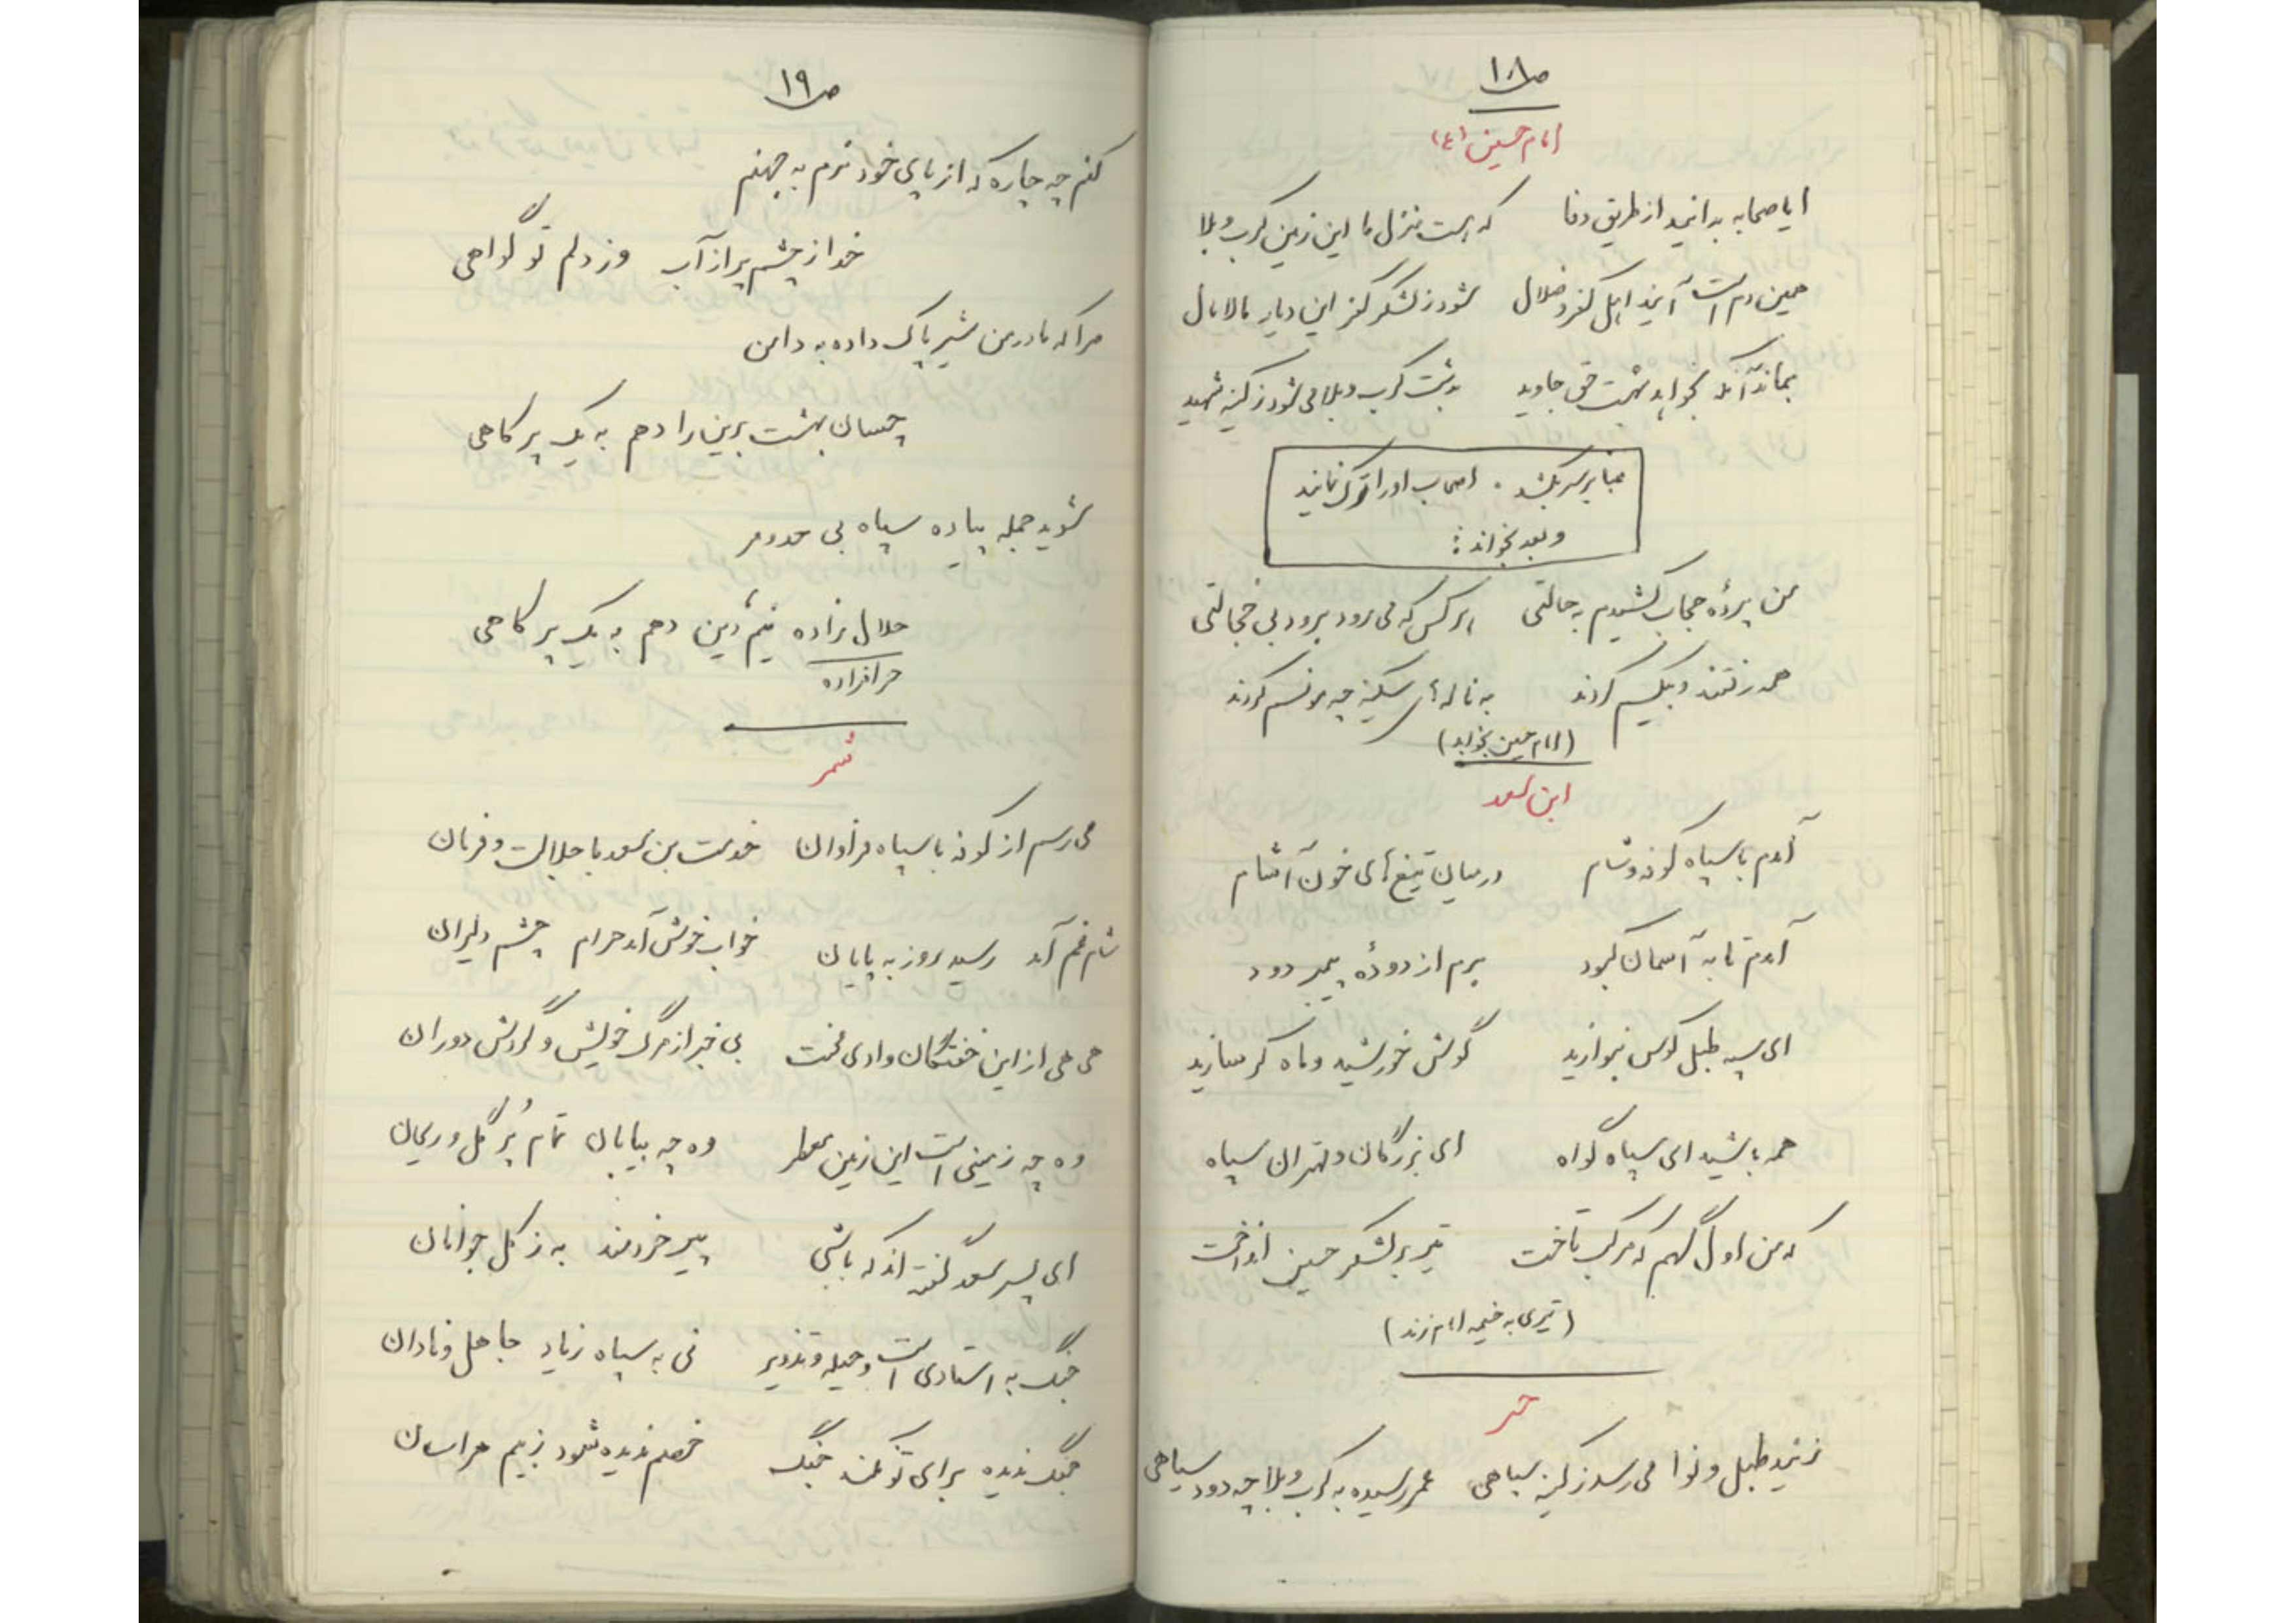 ص ۱۸
امام حسین (ع)
ایا صحابه بدانید از طریق وفا که هست منزل ما این زمین کرب و بلا
همین دم است آیند اهل کفر و ضلال شود ز لشکر کفر این دیار مالامال
بماند آنکه نخواهد بهشت حق جاوید به دشت کرب و بلا می شود ز کینه شهید
عبا بر سر بکشد. اصحاب او را ترک نمایند
و بعد بخواند:
من پردهٔ حجاب کشیدم به حالتی هر کس که می رود برود بی خجالتی
همه رفتند و بیکسم کردند به ناله های سکینه چه مونسم کردند
(امام حسین بخوابد)
ابن سعد
آمدم با سپاه کوفه و شام در میان تیغ های خون آشام
آمدم تا به آسمان کبود برم از دودهٔ پیمبر دود
ای سپه طبل کوس بنوازید گوش خورشید و ماه کر سازید
همه باشید ای سپاه گواه ای بزرگان و مهتران سپاه
که من اول کسم که مرکب تاخت تیر بر لشکر حسین انداخت
(تیری به خیمه امام زند)
حر
زنید طبل و نوا می رسد ز کینه سپاهی عمر رسیده به کرب و بلا چه دود سیاهی
ص ۱۹
کنم چه چاره که از پای خود نروم به جهنم
خدا ز چشم پر از آب وز دلم تو گواهی
مرا که مادر من شیر پاک داده به دامن
چسان بهشت برین را دهم به یک پر کاهی
شوید جمله پیاده سپاه بی حد و مر
حلال زاده نیم دین دهم به یک پر کاهی
حرامزاده
شمر
می رسم از کوفه با سپاه فراوان خدمت بن سعد با جلالت و فرمان
شام غم آمد رسید روز به پایان خواب خوش آمد حرام چشم دلیران
هی هی از این خفتگان وادی محنت بی خبر از مرگ خویش و گردش دوران
وه چه زمینی است این زمین معطر وه چه بیابان تمام پُر گل و ریحان
ای پسر سعد گفته اند که باشی پیر خردمند به ز کل جوانان
جنگ به استادی است و حیله و تزویر نی به سپاه زیاد جاهل و نادان
جنگ ندیده برای تو نکند جنگ خصم ندیده شود ز بیم هراسان